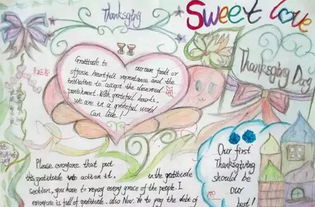 Thanksgiving
Sweet love
Thanksgiving Day
Gratitude is our own fault or
offense heartfelt repentance and the
initiative to accept the deserved
punishment. With grateful hearts,
we are in a grateful world
Can look !
Please everyone that put
this gratitude in the gratitude
section, you have to repay every grace of the people. I
everyone is full of gratitude. also Now. We to pay the date of
Our first
Thanksgiving
should be
our
best!